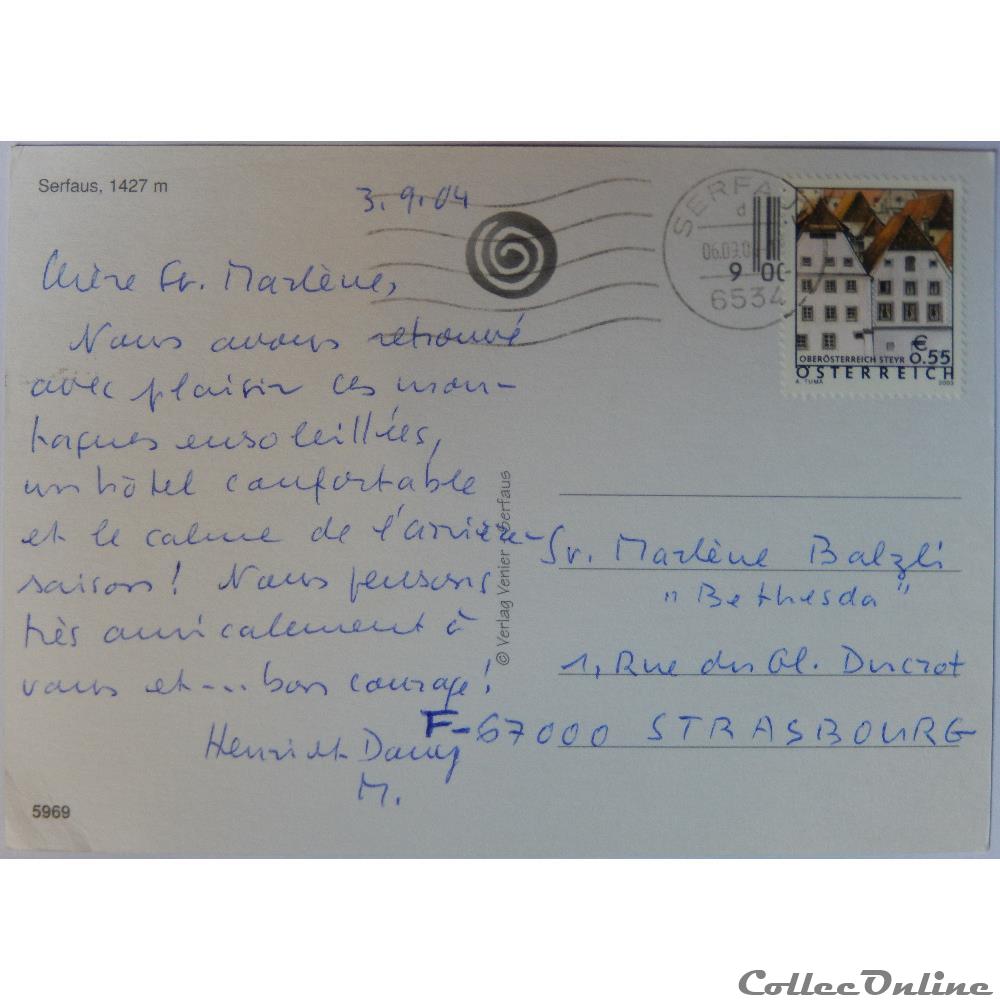 Serfaus, 1427 m
3.9.04
Chère Sr. Marlène,
Nous avons retrouvé
avec plaisir ces mon-
tagnes ensoleillées,
un hôtel confortable
et le calme de l'arrière-
saison! Nous pensons
très amicalement à
vous et... bon courage!
Henri et Dany
M.
5969
© Verlag Venier Serfaus
SERFAUS
d
9 00
6534
€
0.55
OBERÖSTERREICH STEYR
ÖSTERREICH
A. TUMA 2003
Sr. Marlène Balzli
"Bethesda"
1, Rue du Gl. Ducrot
F-67000 STRASBOURG
CollecOnline